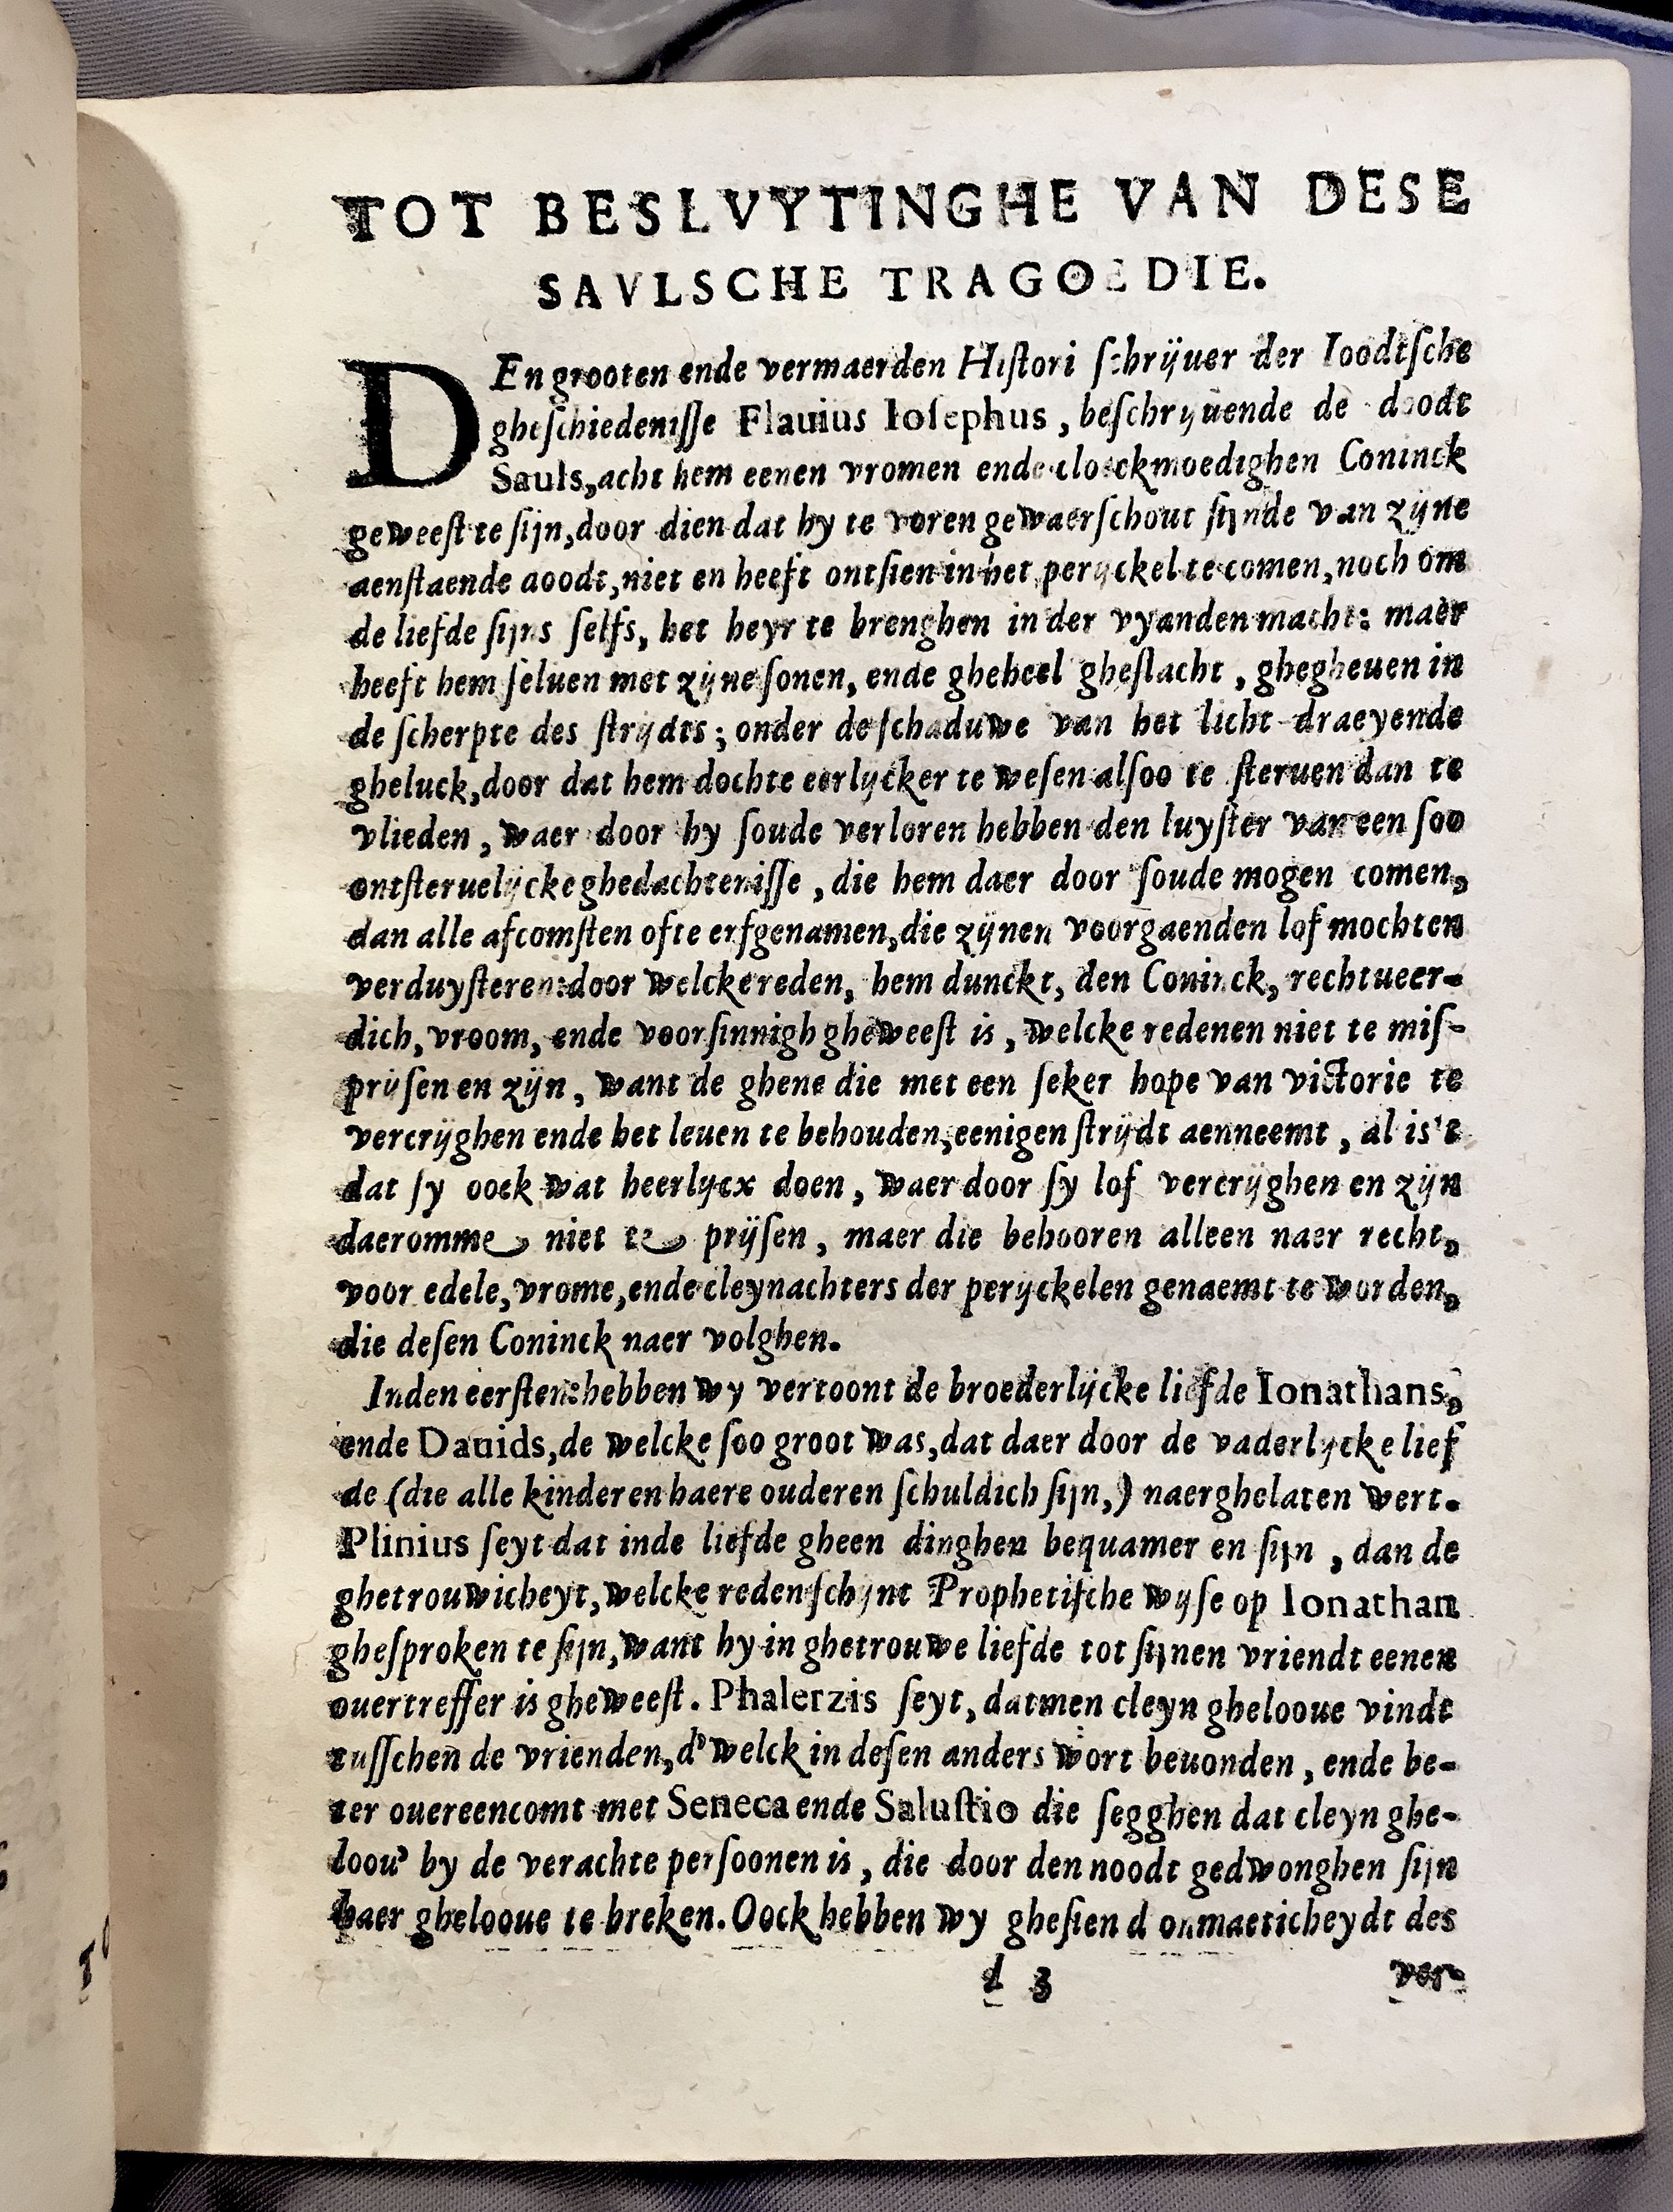 TOT BESLVYTINGHE VAN DESE
SAVLSCHE TRAGOEDIE.
DEn grooten ende vermaerden Histori schrijuer der Ioodtsche
gheschiedenisse Flauius Iosephus, beschryuende de doodt
Sauls, acht hem eenen vromen ende cloeckmoedighen Coninck
geweest te sijn, door dien dat hy te voren gewaerschout sijnde van zijne
aenstaende doodt, niet en heeft ontsien in het peryckel te comen, noch om
de liefde sijns selfs, het heyr te brenghen in der vyanden macht: maer
heeft hem seluen met zijne sonen, ende gheheel gheslacht, ghegheuen in
de scherpte des strijdts; onder de schaduwe van het licht-draeyende
gheluck, door dat hem dochte eerlijcker te wesen alsoo te steruen dan te
vlieden, waer door hy soude verloren hebben den luyster van een soo
ontsteruelijcke ghedachtenisse, die hem daer door soude mogen comen,
dan alle afcomsten ofte erfgenamen, die zijnen voorgaenden lof mochten
verduysteren: door welcke reden, hem dunckt, den Coninck, rechtueer-
dich, vroom, ende voorsinnigh gheweest is, welcke redenen niet te mis-
prijsen en zijn, want de ghene die met een seker hope van victorie te
vercrijghen ende het leuen te behouden, eenigen strijdt aenneemt, al is't
dat sy oock wat heerlijcx doen, waer door sy lof vercrijghen en zijn
daeromme niet te prijsen, maer die behooren alleen naer recht,
voor edele, vrome, ende cleynachters der perijckelen genaemt te worden,
die desen Coninck naer volghen.
Inden eersten: hebben wy vertoont de broederlijcke liefde Ionathans,
ende Dauids, de welcke soo groot was, dat daer door de vaderlycke lief
de (die alle kinderen haere ouderen schuldich sijn,) naerghelaten wert.
Plinius seyt dat inde liefde gheen dinghen bequamer en sijn, dan de
ghetrouwicheyt, welcke reden schynt Prophetische wyse op Ionathan
ghesproken te sijn, want hy in ghetrouwe liefde tot sijnen vriendt eenen
ouertreffer is gheweest. Phalerzis seyt, datmen cleyn ghelooue vindt
tusschen de vrienden, d'welck in desen anders wort beuonden, ende be-
ter ouereencomt met Seneca ende Salustio die segghen dat cleyn ghe-
loou' by de verachte persoonen is, die door den noodt gedwonghen sijn
haer ghelooue te breken. Oock hebben wy ghesien d onmaeticheydt des
d 3 ver-